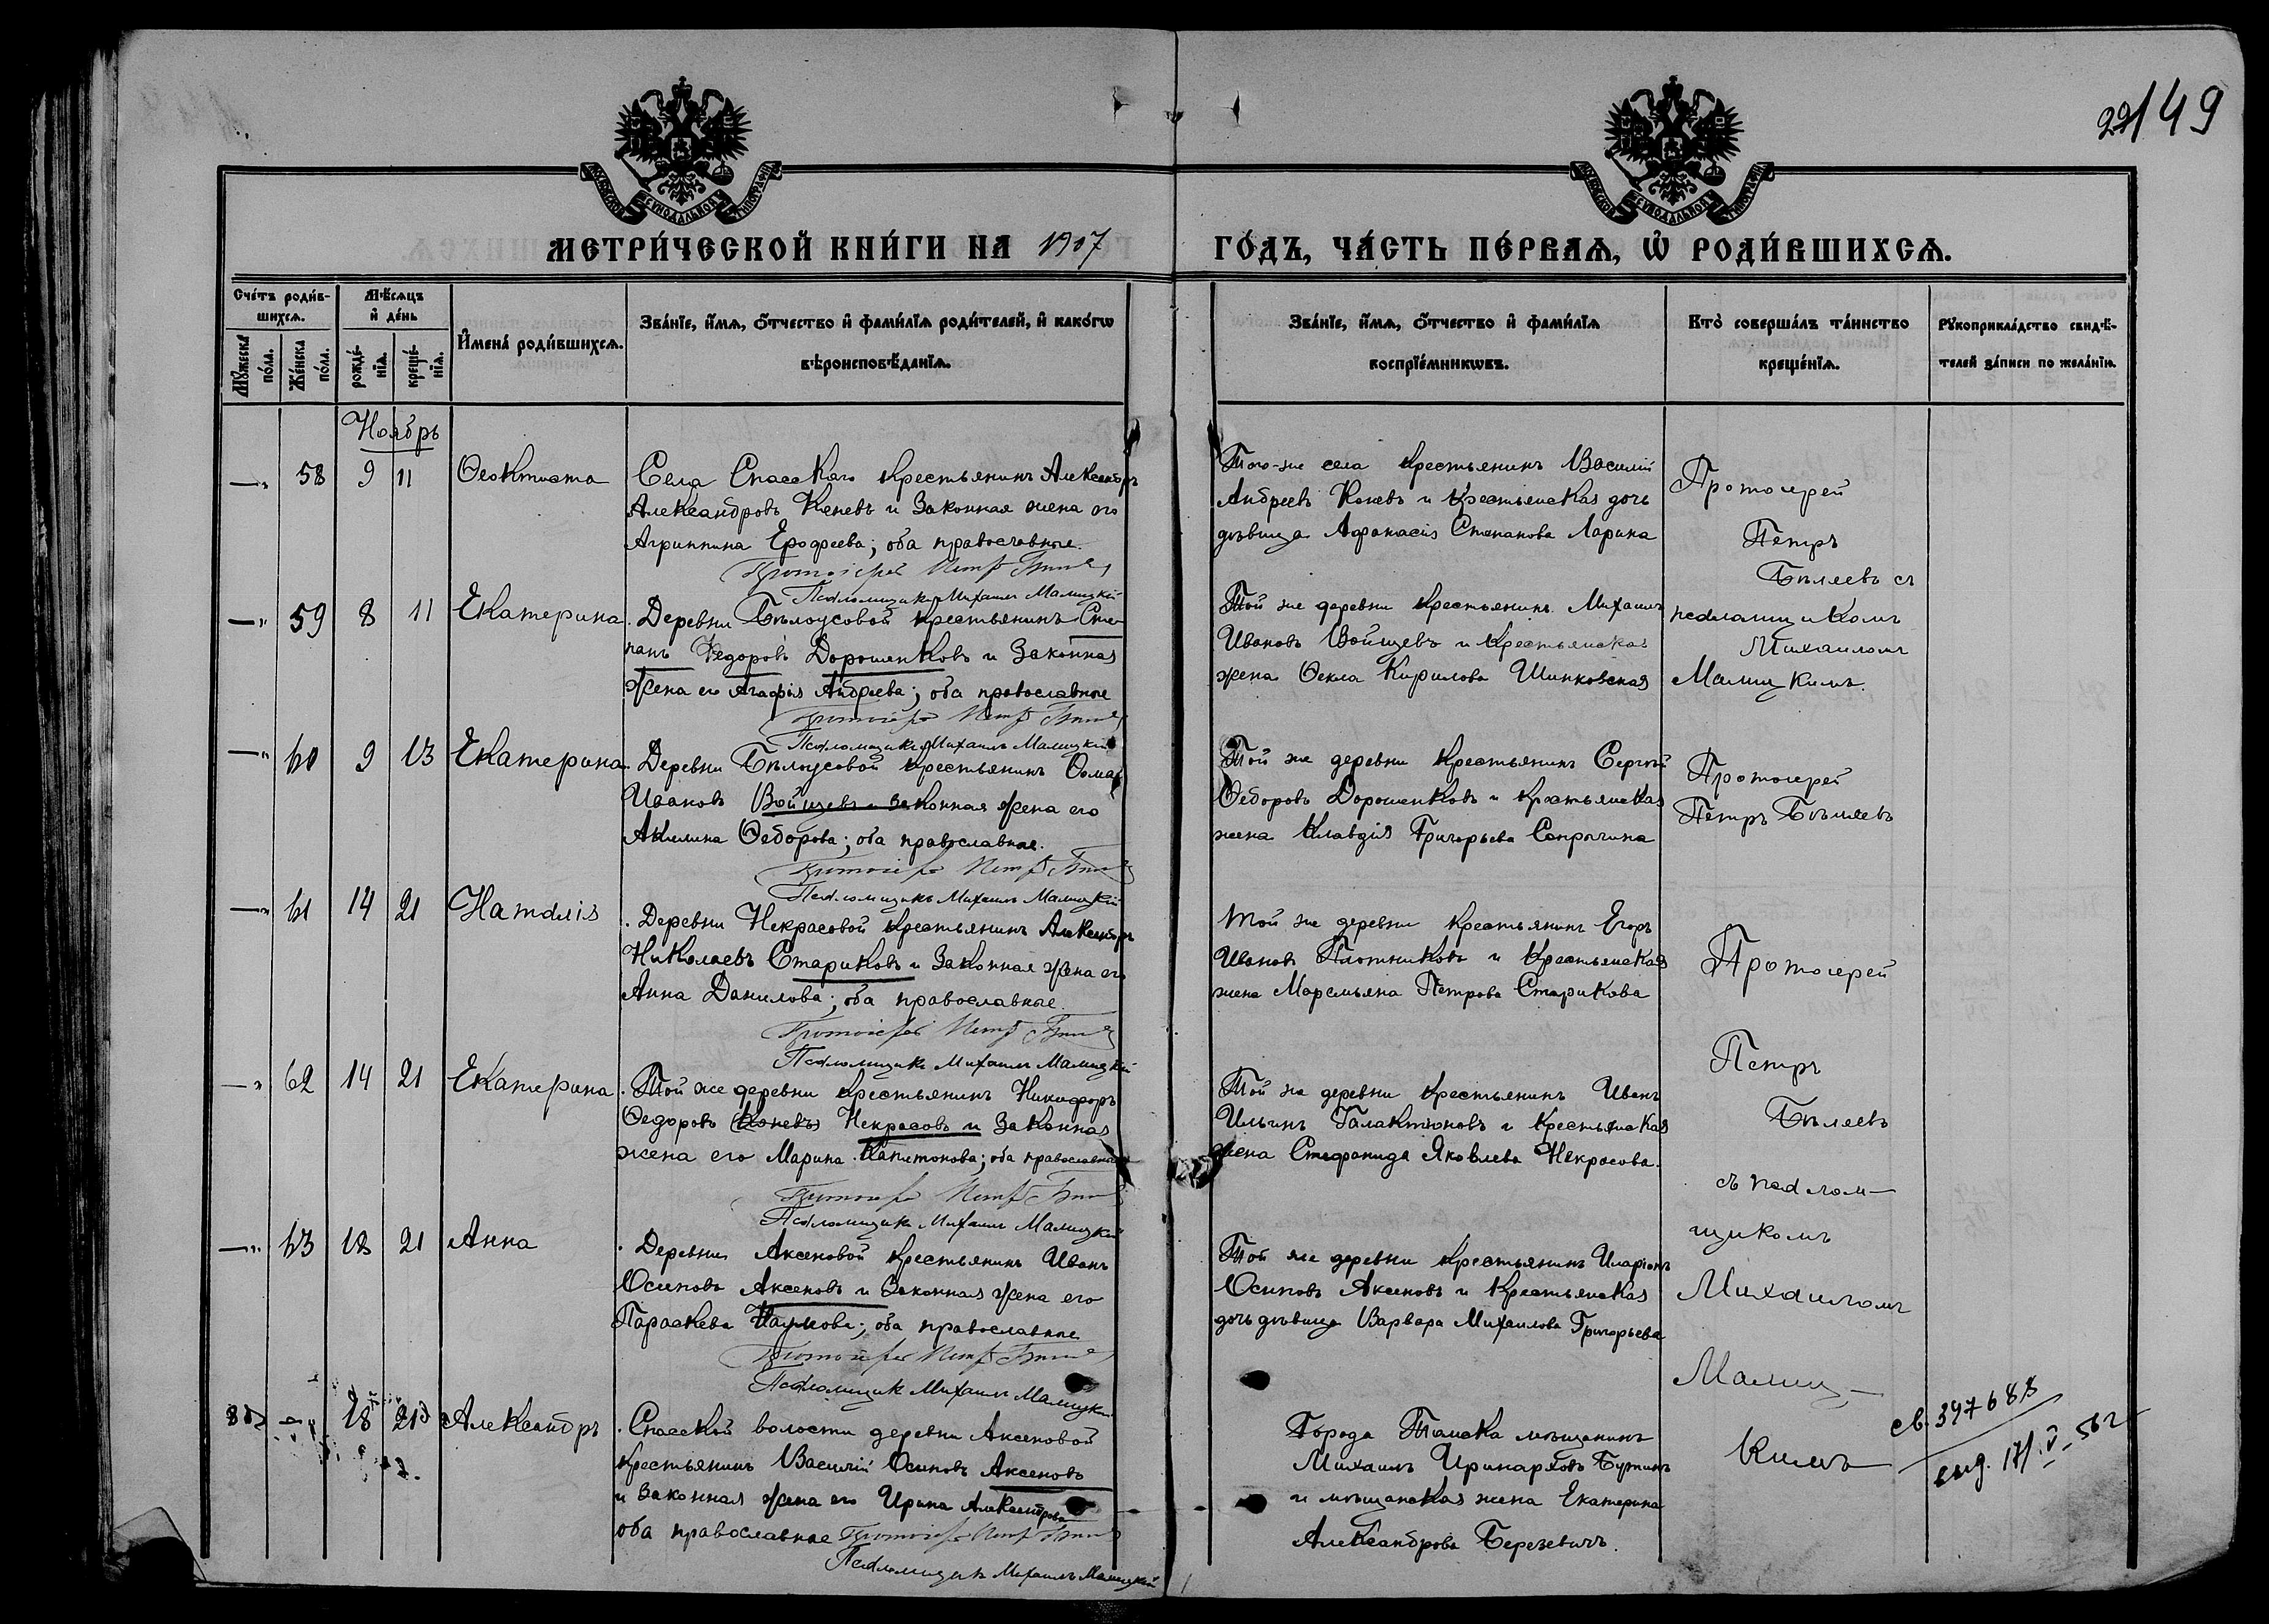 22/149
МЕТРИ́ЧЕСКОЙ КНИ́ГИ НА 1907 ГО́ДЪ, ЧА́СТЬ ПЕ́РВАѦ, Ѽ РОДИ́ВШИХСѦ.
Сче́тъ роди́в-
шихсѧ.
Мꙋ́жеска по́ла.
Же́нска по́ла.
Мѣ́сѧцъ
и҆ де́нь
рожде́-
нїѧ.
креще́-
нїѧ.
И҆мена̀ роди́вшихсѧ.
Зва́нїе, и҆́мѧ, ѻ҆́тчество и҆ фами́лїѧ роди́телей, и҆ како́гѡ
вѣроисповѣ́данїѧ.
Зва́нїе, и҆́мѧ, ѻ҆́тчество и҆ фами́лїѧ
воспрїе́мникѡвъ.
Кто̀ соверша́лъ та́инство
креще́нїѧ.
Рꙋкоприкла́дство свидѣ́-
телей за́писи по жела́нїю.
Ноябрь
58 9 11 Ѳеоктиста
Села Спасскаго крестьянинъ Александръ
Александровъ Коневъ и законная жена его
Агриппина Ерофеева; оба православные.
Протоіерей Петръ
Псаломщикъ Михаилъ Малицкій
Того-же села крестьянинъ Василій
Андреевъ Коневъ и крестьянская дочь
дѣвица Афанасія Степанова Ларина
Протоіерей
Петръ
Бѣляевъ съ
псаломщикомъ
Михаиломъ
Малицкимъ.
59 8 11 Екатерина
Деревни Бѣлоусовой крестьянинъ Сте-
панъ Федоровъ Дорошенковъ и законная
жена его Агафія Андреева; оба православные
Протоіерей Петръ
Псаломщикъ Михаилъ Малицкій
Той же деревни крестьянинъ Михаилъ
Ивановъ Войщевъ и крестьянская
жена Ѳекла Кирилова Шинковская
60 9 13 Екатерина
Деревни Бѣлоусовой крестьянинъ Ѳома
Ивановъ Войщевъ и законная жена его
Акилина Ѳедорова; оба православные.
Протоіерей Петръ
Псаломщикъ Михаилъ Малицкій
Той же деревни крестьянинъ Сергѣй
Ѳедоровъ Дорошенковъ и крестьянская
жена Клавдія Григорьева Сапрычина
Протоіерей
Петръ Бѣляевъ
61 14 21 Наталія
Деревни Некрасовой крестьянинъ Александръ
Николаевъ Стариковъ и законная жена его
Анна Данилова; оба православные
Протоіерей Петръ
Псаломщикъ Михаилъ Малицкій
Той же деревни крестьянинъ Егоръ
Ивановъ Плотниковъ и крестьянская
жена Маремьяна Петрова Старикова
Протоіерей
62 14 21 Екатерина
Той же деревни крестьянинъ Никифоръ
Ѳедоровъ (Коневъ) Некрасовъ и законная
жена его Марина Капитонова; оба православные
Протоіерей Петръ
Псаломщикъ Михаилъ Малицкій
Той же деревни крестьянинъ Иванъ
Ильинъ Галактіоновъ и крестьянская
жена Стефанида Яковлева Некрасова.
Петръ
Бѣляевъ
съ псалом-
щикомъ
63 18 21 Анна
Деревни Аксеновой крестьянинъ Иванъ
Осиповъ Аксеновъ и законная жена его
Параскева Наумова; оба православные
Протоіерей Петръ
Псаломщикъ Михаилъ Малицкій
Той же деревни крестьянинъ Иларіонъ
Осиповъ Аксеновъ и крестьянская
дочь дѣвица Варвара Михаилова Григорьева
Михаиломъ
Малиц-
18 21 Александръ
Спасской волости деревни Аксеновой
крестьянинъ Василій Осиповъ Аксеновъ
и законная жена его Ирина Александрова
оба православные Протоіерей Петръ
Псаломщикъ Михаилъ Малицкій
Города Томска мѣщанинъ
Михаилъ Иринарховъ
и мѣщанская жена Екатерина
Александрова Березевичъ.
кимъ
св. 397688